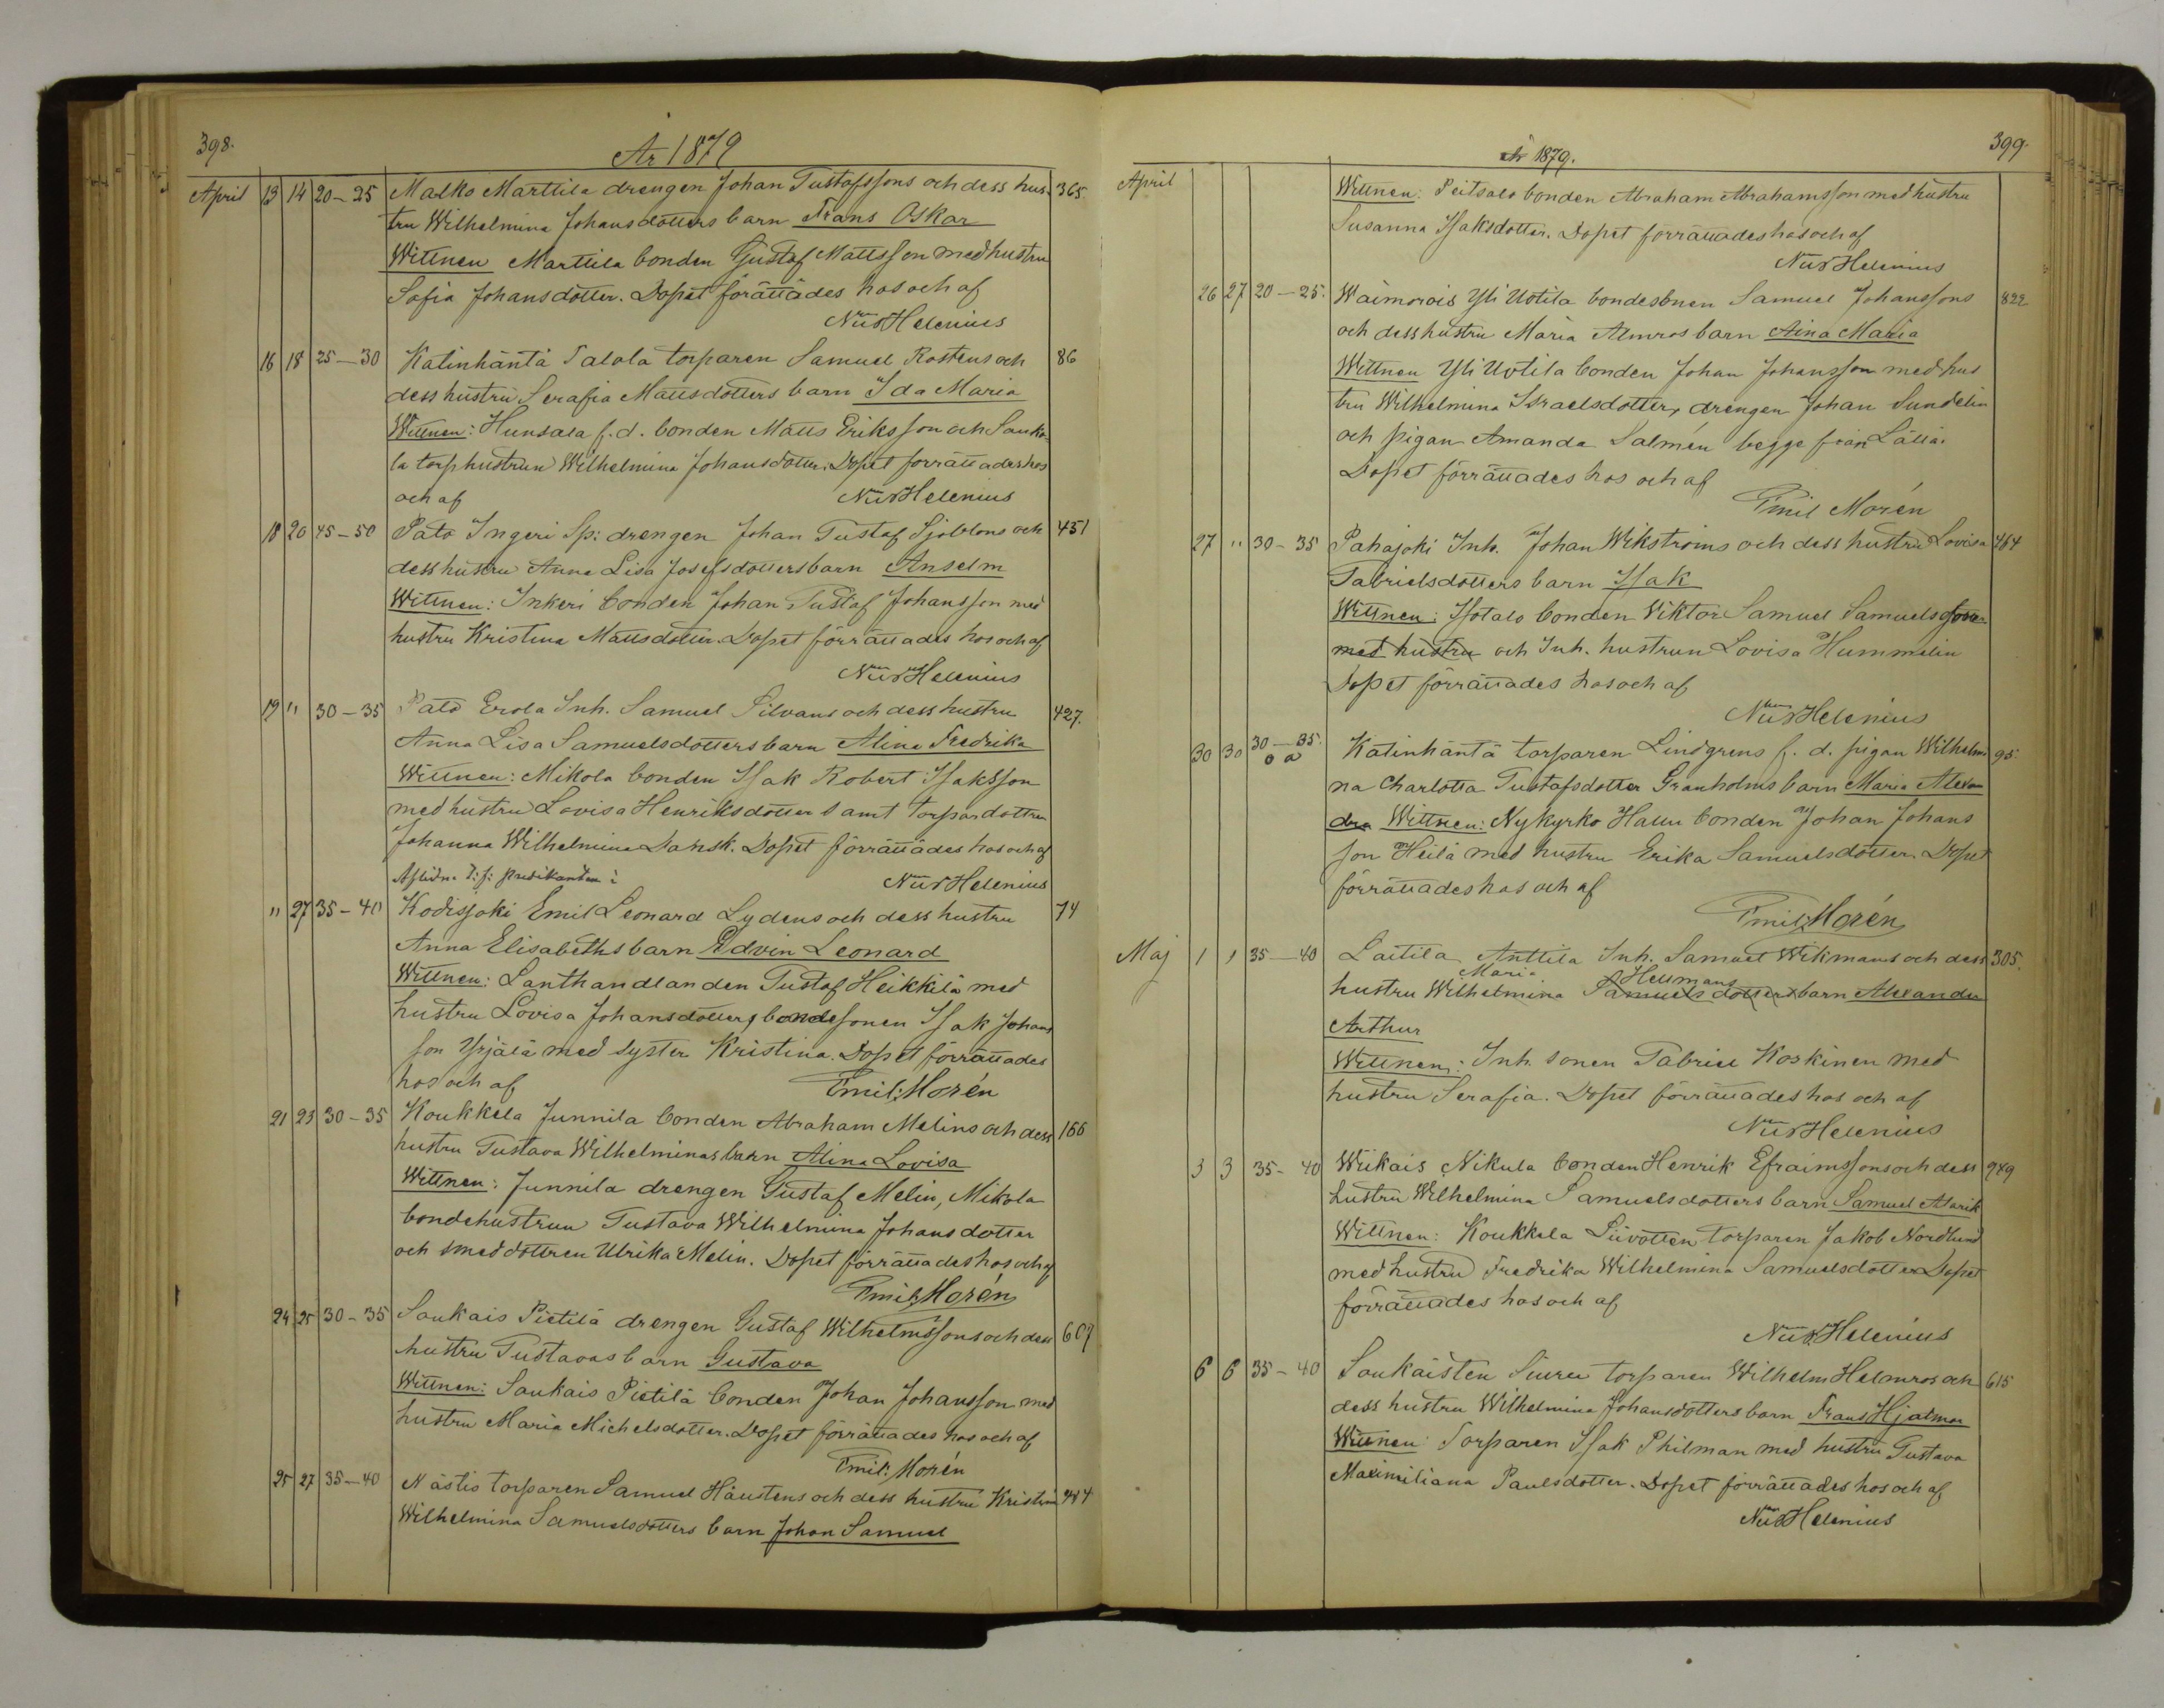 398.
År 1879
April 13 14 20-25 Malko Marttila drengen Johan Gustafssons och dess hus- 365.
tru Wilhelmina Johansdotters barn Frans Oskar
Wittnen Marttila bonden Gustaf Mattsson med hustru
Sofia Johansdotter. Dopet förättades hos och af
Nils Helenius
16 18 25-30 Katinhäntä Talola torparen Samuel Rostens och 86
dess hustru Serafia Mattsdotters barn Ida Maria
Wittnen: Hunsala f.d. bonden Matts Eriksson och Sauko-
la torphustrun Wilhelmina Johansdotter. Dopet förrättades hos
och af Nils Helenius
18 20 45-50 Pato Ingeri Sp: drengen Johan Gustaf Sjöbloms och 451
dess hustru Anna Lisa Josefsdotters barn Anselm
Wittnen: Inkeri bonden Johan Gustaf Johansson med
hustru Kristina Mattsdotter. Dopet förrättades hos och af
Nils Helenius
19 " 30-35 Pato Erola Inh. Samuel Silvans och dess hustru 427.
Anna Lisa Samuelsdotters barn Alina Fredrika
Wittnen: Mikola bonden Isak Robert Isaksson
med hustru Lovisa Henriksdotter samt torpardottren
Johanna Wilhelmina Dansk. Dopet förrättades hos och af
Nils Helenius
" 27 35-40 Kodisjoki Emil Leonard Lydens och dess hustru 74
Anna Elisabeths barn Edvin Leonard
Wittnen: Lanthandlanden Gustaf Heikkilä med
hustru Lovisa Johansdotter, bondesonen Isak Johans
son Yrjälä med syster Kristina. Dopet förrättades
hos och af Emil Morén
21 23 30-35 Koukkela Junnila bonden Abraham Melins och dess 166
hustru Gustava Wilhelminas barn Alina Lovisa
Wittnen: Junnila drengen Gustaf Melin, Mikola
bondehustrun Gustava Wilhelmina Johansdotter
och smeddottren Ulrika Melin. Dopet förrättades hos och af
Emil Morén
24 25 30-35 Saukais Pietilä drengen Gustaf Wilhelmssons och dess 607
hustru Gustavas barn Gustava
Wittnen: Saukais Pietilä bonden Johan Johansson med
hustru Maria Michelsdotter. Dopet förrättades hos och af
Emil Morén
25 27 35-40 Nästis torparen Samuel Häustens och dess hustru Kristina 414
Wilhelmina Samuelsdotters barn Johan Samuel
399.
År 1879.
April Wittnen: Peitsalo bonden Abraham Abrahamsson med hustru
Susanna Isaksdotter. Dopet förrättades hos och af
Nils Helenius
26 27 20-25. Waimorois Yli Uotila bondesonen Samuel Johanssons 822
och dess hustru Maria Almros barn Aina Maria
Wittnen Yli Uotila bonden Johan Johansson med hus
tru Wilhelmina Israelsdotter, drengen Johan Sundelin
och pigan Amanda Salmén begge från Lättä.
Dopet förrättades hos och af
Emil Morén
27 " 30-35 Pahajoki Inh. Johan Wikströms och dess hustru Lovisa 464
Gabrielsdotters barn Isak
Wittnen: Isotalo bonden Viktor Samuel Samuelsson
med hustru och Inh. hustrun Lovisa Hummelin
Dopet förrättades hos och af
Nils Helenius
30 30 30-35. Katinhäntä torparen Lindgrens f. d. pigan Wilhelmi 95.
o ä
na Charlotta Gustafsdotter Granholms barn Maria Alexan
dra Wittnen: Nykyrko Hallu bonden Johan Johans
son Heilä med hustru Erika Samuelsdotter. Dopet
förrättades hos och af
Emil Morén
Maj 1 1 35-40 Laitila Anttila Inh. Samuel Wikmans och dess 305.
Maria Hellmans
hustru Wilhelmina Samuelsdotters barn Alexander
Arthur
Wittnen: Inh. sonen Gabriel Koskinen med
hustru Serafia. Dopet förrättades hos och af
Nils Helenius
3 3 35-40 Wiikais Nikula bonden Henrik Efraimssons och dess 949
hustru Wilhelmina Samuelsdotters barn Samuel Alarik
Wittnen: Koukkela Siivotten torparen Jakob Nordlund
med hustru Fredrika Wilhelmina Samuelsdotter Dopet
förrättades hos och af
Nils Helenius
6 6 35-40 Saukaisten Siuru torparen Wilhelm Helmros och 615
dess hustru Wilhelmina Johansdotters barn Frans Hjalmar
Wittnen Torparen Isak Philman med hustru Gustava
Maximiliana Paulsdotter. Dopet förrättades hos och af
Nils Helenius